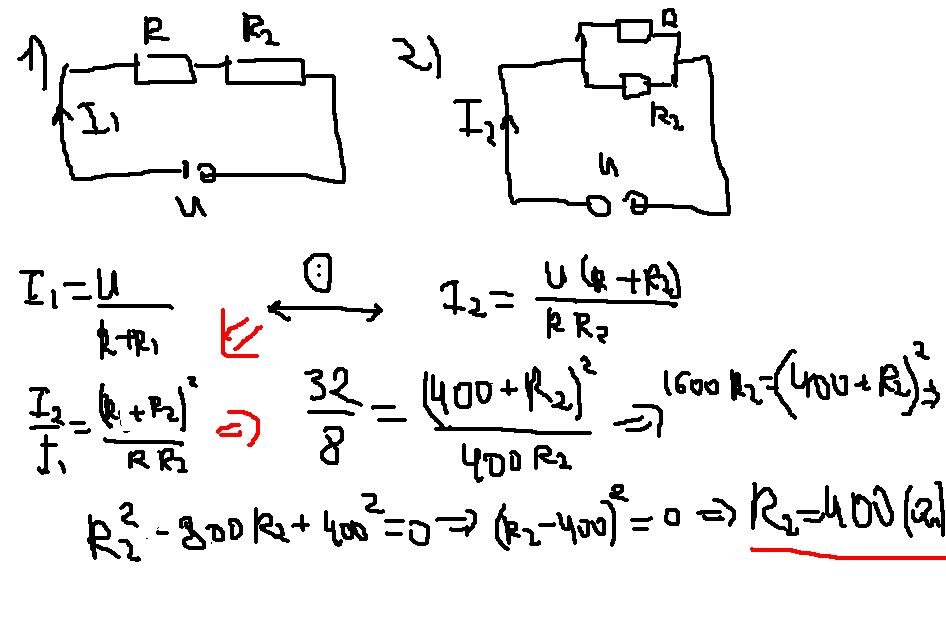 1) R R₂ 2) R
I₁ I₂ R₂
U U
I₁ = U / (R+R₁) (:) I₂ = U (R+R₂) / R R₂
I₂/I₁ = (R+R₂)² / R R₂ => 32/8 = (400+R₂)² / 400 R₂ => 1600 R₂ = (400+R₂)² =>
R₂² - 800 R₂ + 400² = 0 => (R₂-400)² = 0 => R₂ = 400